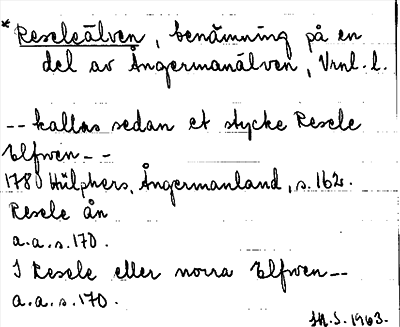 * Reseleälven, benämning på en
del av Ångermanälven, Vrnl. l.
-- kallas sedan et stycke Resele
Elfwen --
1780 Hülphers, Ångermanland, s. 162.
Resele ån
a.a.s. 170.
I Resele eller norra Elfwen --
a.a.s. 170.
1963.